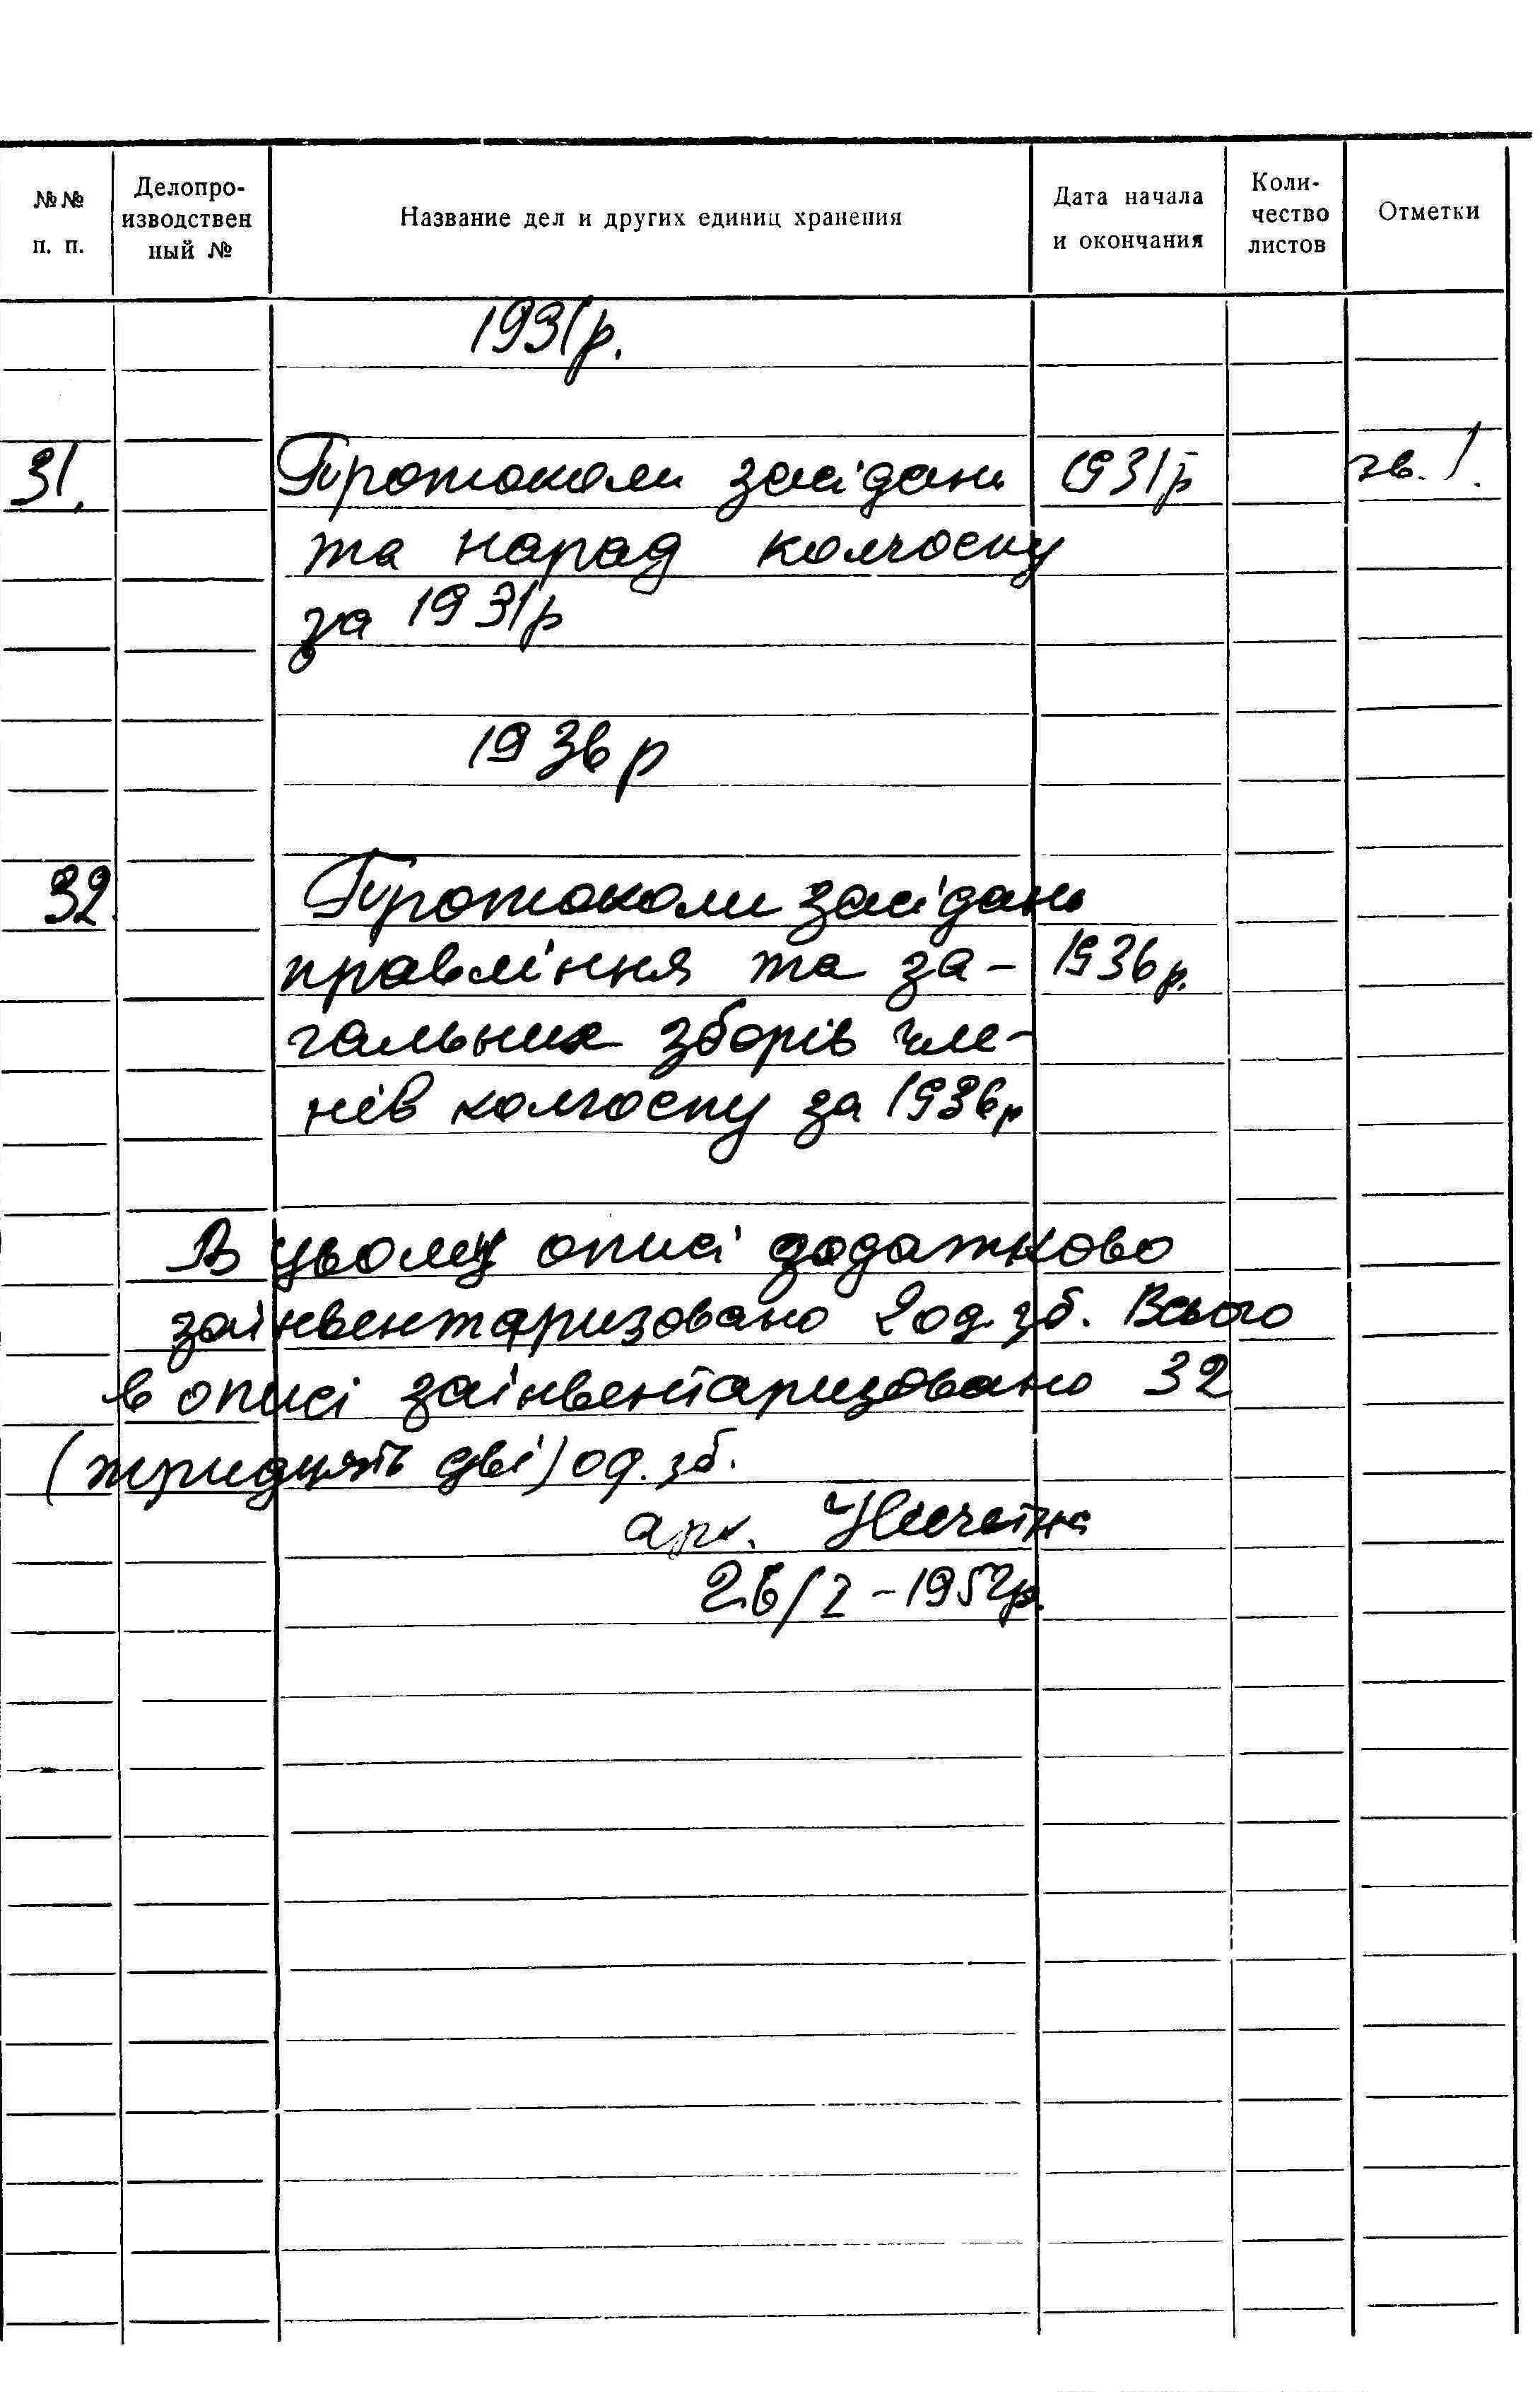 №№ п. п. Делопроизводствен ный № Название дел и других единиц хранения Дата начала и окончания Количество листов Отметки
1931р.
31. Протоколи засідань 1931р зв. 1.
та нарад колгоспу
за 1931р
1936р
32. Протоколи засідань
правління та за- 1936р.
гальних зборів чле-
нів колгоспу за 1936р
В цьому описі додатково
заінвентаризовано 2 од. зб. Всього
в описі заінвентаризовано 32
(тридцять дві) од. зб.
арх.
26/2-1952р.